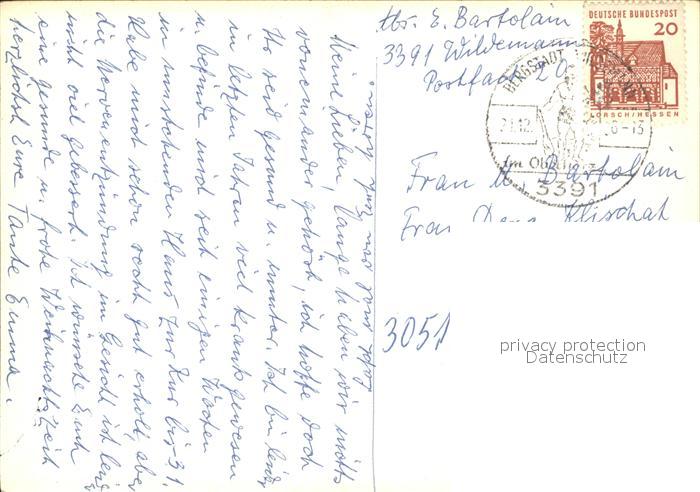 Abs. E. Bartolain
3391 Wildemann
Postfach 20
DEUTSCHE BUNDESPOST
20
LORSCH/HESSEN
BERGSTADT
21.12.
6-13
Im Oberharz
3391
Frau M. Bartolain
Frau Klischat
3051
privacy protection
Datenschutz
Meine Lieben, Lange haben wir nichts
voneinander gehört, ich hoffe doch
Ihr seid gesund u. munter. Ich bin leider
in letzten Jahren viel krank gewesen
u. befinde mich seit einigen Wochen
im umstehenden Haus zur Kur bis 31.
Habe mich schon recht gut erholt, aber
die Nervenentzündung im Gesicht ist leider
nicht viel gebessert. Ich wünsche Euch
eine gesunde u. frohe Weihnachtszeit
herzlichst Eure Tante Emma.